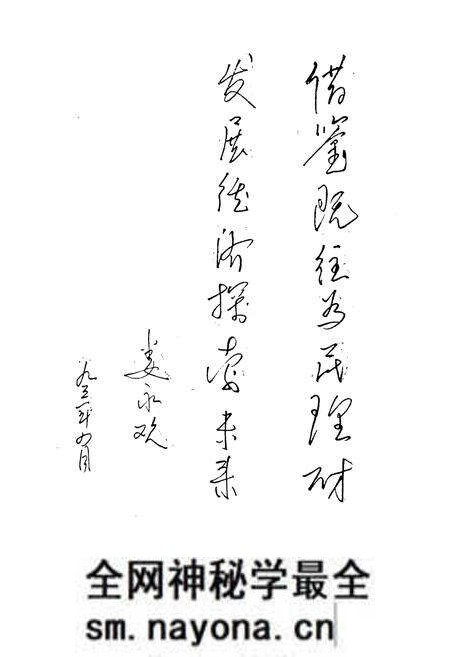 借鉴既往为民理财
发展经济探索未来
娄永欢
九三年 月
全网神秘学最全
sm.nayona.cn